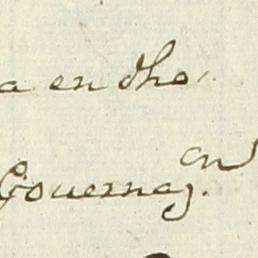 a en dho.
Gouernaz.on